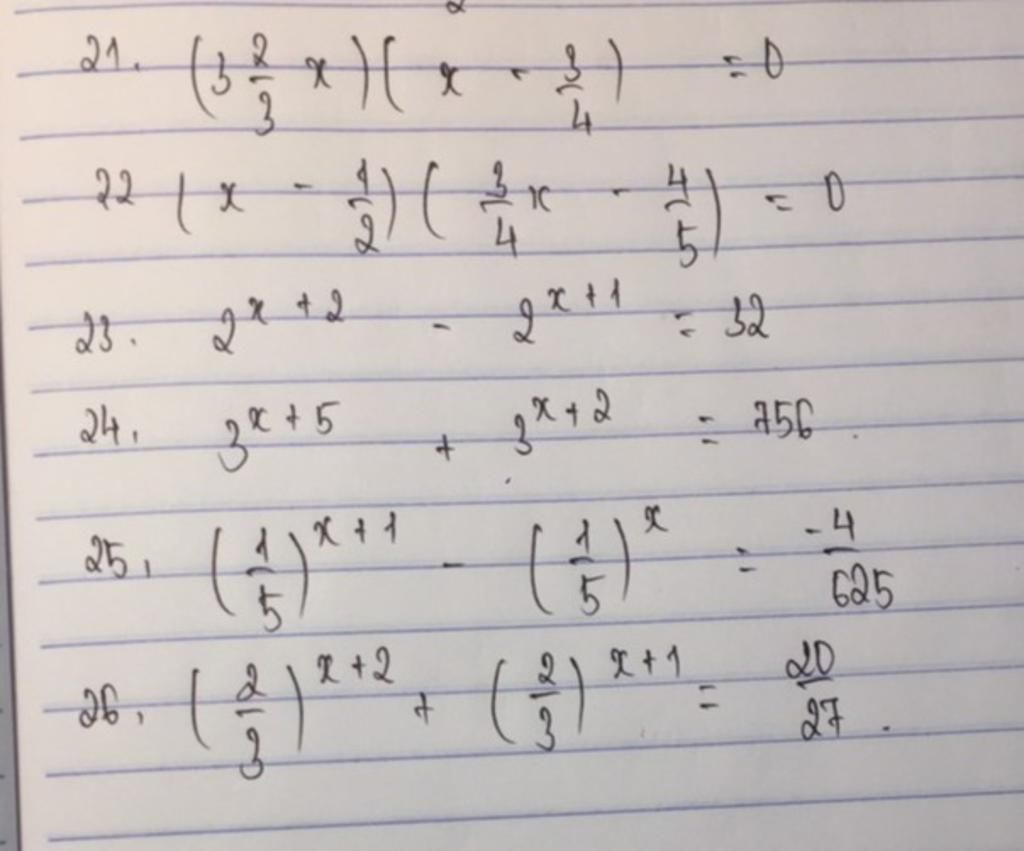 21. (3 2/3 x)( x - 3/4 ) = 0
22 ( x - 1/2 ) ( 3/4 x - 4/5 ) = 0
23. 2^(x + 2) - 2^(x + 1) = 32
24. 3^(x + 5) + 3^(x + 2) = 756.
25. (1/5)^(x + 1) - (1/5)^x = -4/625
26. (2/3)^(x + 2) + (2/3)^(x + 1) = 20/27.